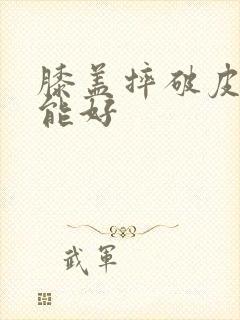 膝盖摔破皮
能好
武軍